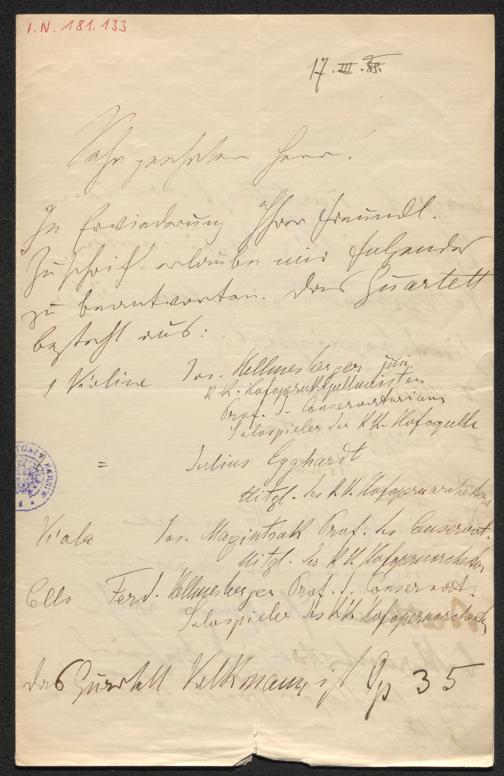 I.N. 181.133
17. III. 88.
Sehr geehrter Herr!
In Erwiederung Ihrer freundl.
Zuschrift erlaube mir folgendes
zu beantworten. Das Quartett
besteht aus:
1 Violine Jos. Hellmesberger jun
K. K. Hofopernkapellmeister
Prof. d. Conservatoriums
Solospieler der KK. Hofcapelle
= Julius Egghardt
Mitgl. des K. K. Hofopernorchesters
Viola Jos. Maxintsak Prof. des Conservat.
Mitgl. des K. K. Hofopernorchesters
Cello Ferd. Hellmesberger Prof. d. Conservat.
Solospieler des KK Hofopernorchest
das Quartett Volkmann ist Op 35